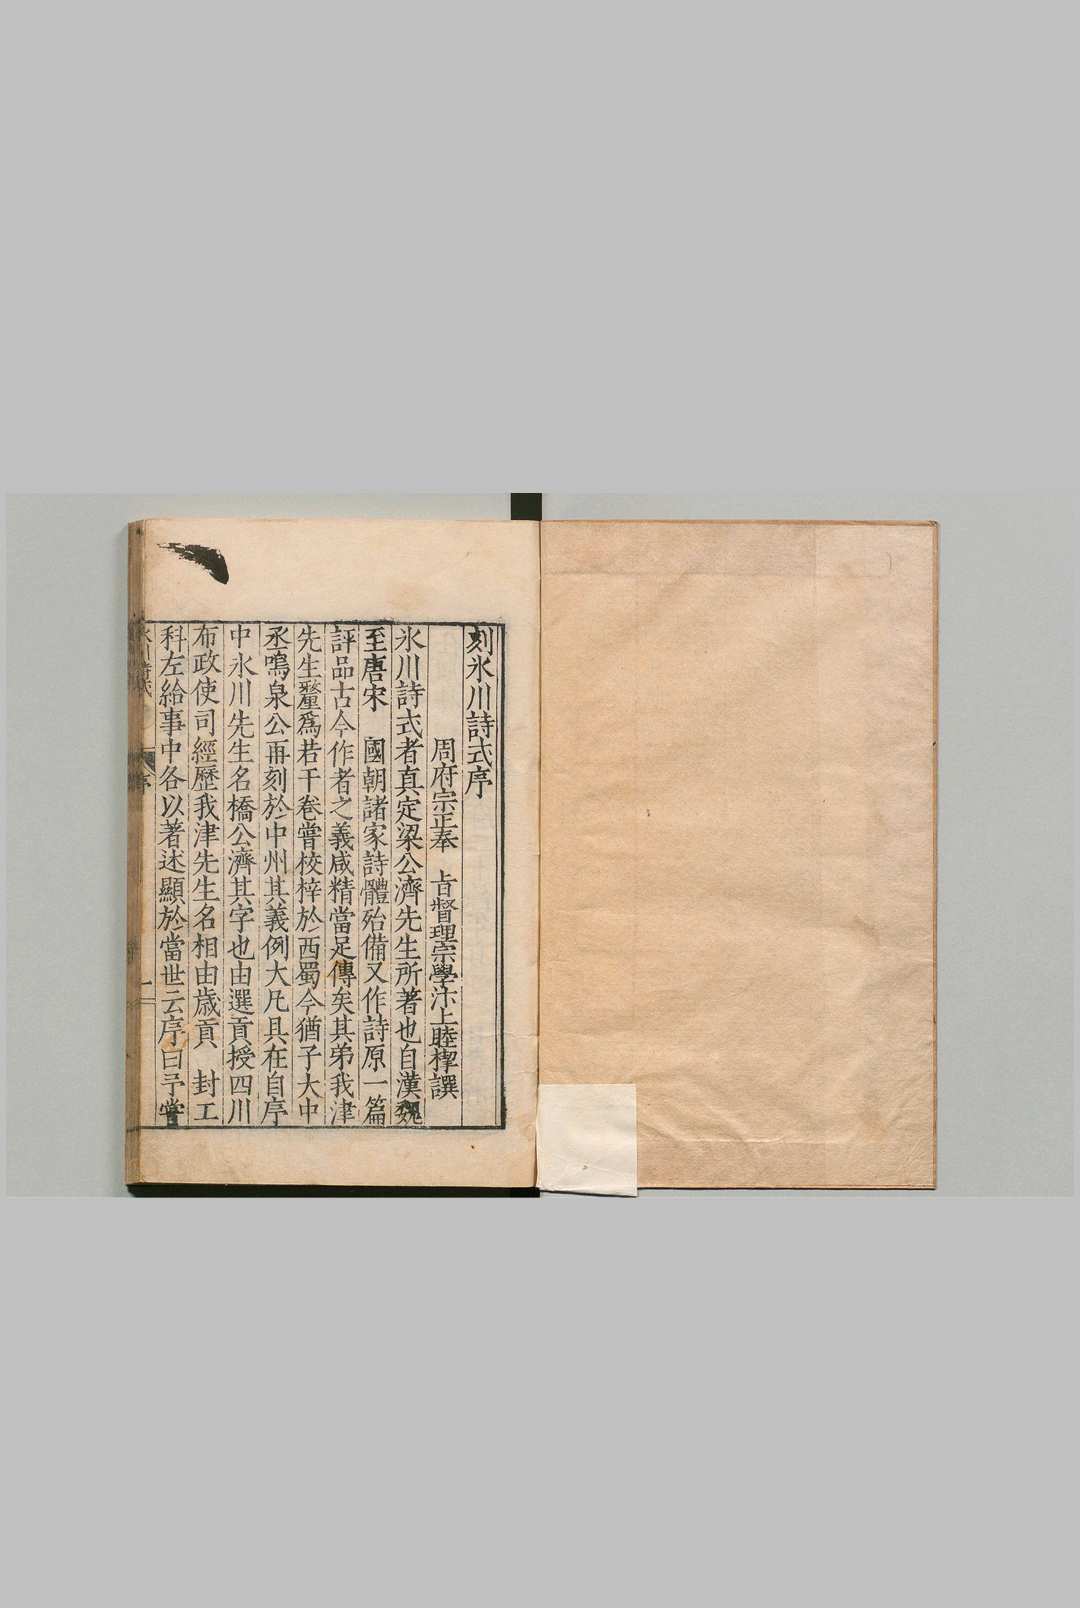 刻氷川詩式序
周府宗正奉　旨督理宗學汴上睦㮮譔
氷川詩式者真定梁公濟先生所著也自漢魏
至唐宋　國朝諸家詩體殆備又作詩原一篇
評品古今作者之義咸精當足傳矣其弟我津
先生釐爲若干卷嘗校梓於西蜀今猶子大中
丞鳴泉公再刻於中州其義例大凡具在自序
中氷川先生名橋公濟其字也由選貢授四川
布政使司經歷我津先生名相由歲貢　封工
科左給事中各以著述顯於當世云序曰予嘗
氷川詩式
序
一